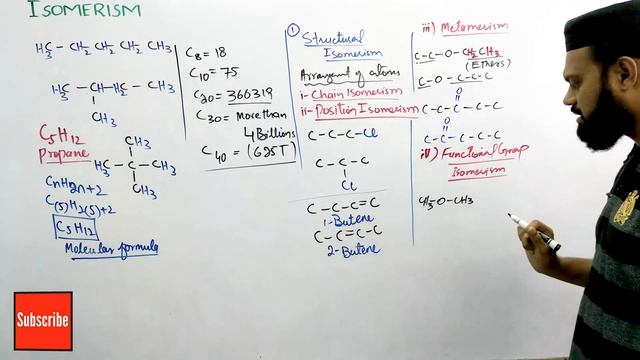 ISOMERISM
H3C - CH2 CH2 CH2 CH3
H3C - CH - H2C - CH3
CH3
C5H12
Propane
CH3
H3C - C - CH3
CH3
CnH2n+2
C(5)H2(5)+2
C5H12
Molecular formula
C8 = 18
C10 = 75
C20 = 366319
C30 = More than
4 Billions
C40 = (62.5T)
1 Structural
Isomerism
Arrangment of atoms
i- Chain Isomerism
ii- Position Isomerism
C-C-C-Cl
C-C-C
Cl
C-C-C=C
1-Butene
C-C=C-C
2-Butene
iii) Metamerism
C-C-O-CH2CH3
(Ethers)
C-O-C-C-C
O
C-C-C-C-C
O
C-C-C-C-C
iv) Functional Group
Isomerism
CH3-O-CH3
Subscribe